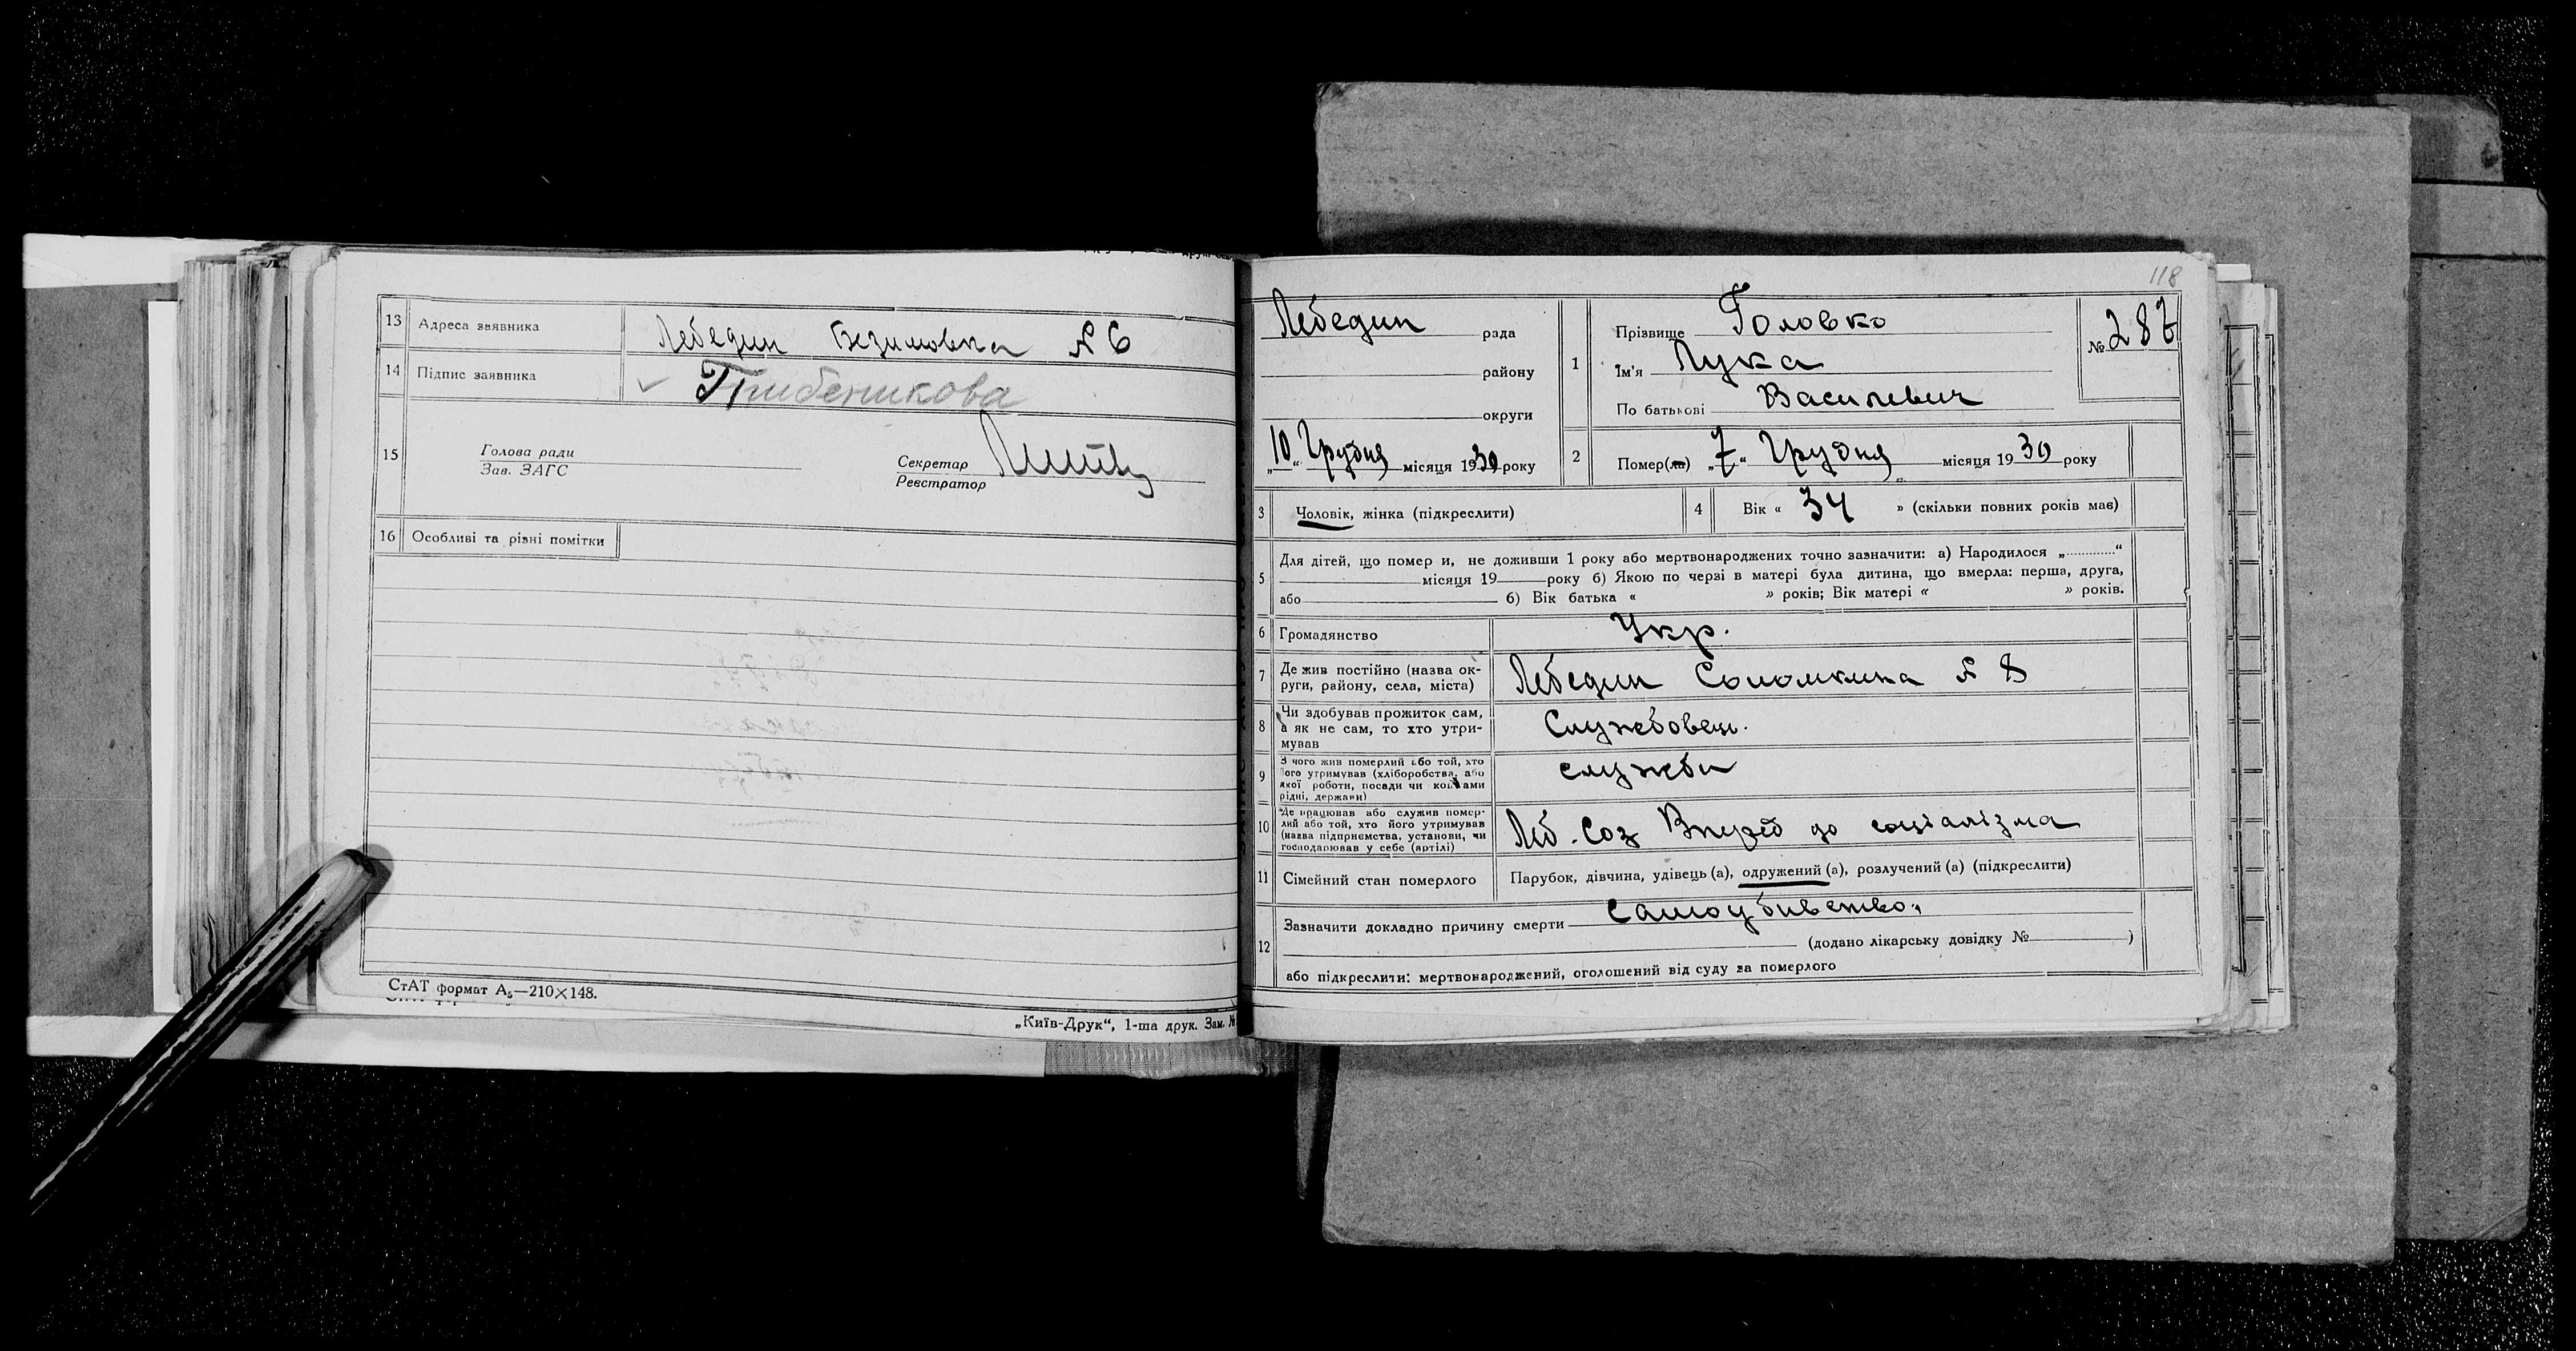 13 Адреса заявника Лебедин Безимовка № 6
14 Підпис заявника
15 Голова ради
Зав. ЗАГС
Секретар
Реєстратор
16 Особливі та різні помітки
СтАТ формат А₅—210×148.
„Київ-Друк“, 1-ша друк. Зам. №
118
Лебедин рада
району
округи
„10“ Грудня місяця 1930 року
1 Прізвище Головко
Ім'я Лука
По батькові Василевич
№ 287
2 Помер(ла) „7“ Грудня місяця 1930 року
3 Чоловік, жінка (підкреслити)
4 Вік « 34 » (скільки повних років має)
5 Для дітей, що помер и, не доживши 1 року або мертвонароджених точно зазначити: а) Народилося „.............“
місяця 19 року б) Якою по черзі в матері була дитина, що вмерла: перша, друга,
або б) Вік батька « » років; Вік матері « » років.
6 Громадянство Укр.
7 Де жив постійно (назва ок-
руги, району, села, міста) Лебедин Соломкина № 8
8 Чи здобував прожиток сам,
а як не сам, то хто утри-
мував Службовець.
9 З чого жив померлий або той, хто
його утримував (хліборобства, або
якої роботи, посади чи коштами
рідні, держави) служби
10 Де працював або служив помер-
лий або той, хто його утримував
(назва підприємства, установи, чи
господарював у себе (артілі) Леб. Соз Вперед до соціалізма
11 Сімейний стан померлого Парубок, дівчина, удівець (а), одружений (а), розлучений (а) (підкреслити)
12 Зазначити докладно причину смерти самоубивство.
(додано лікарську довідку № )
або підкреслити: мертвонароджений, оголошений від суду за померлого